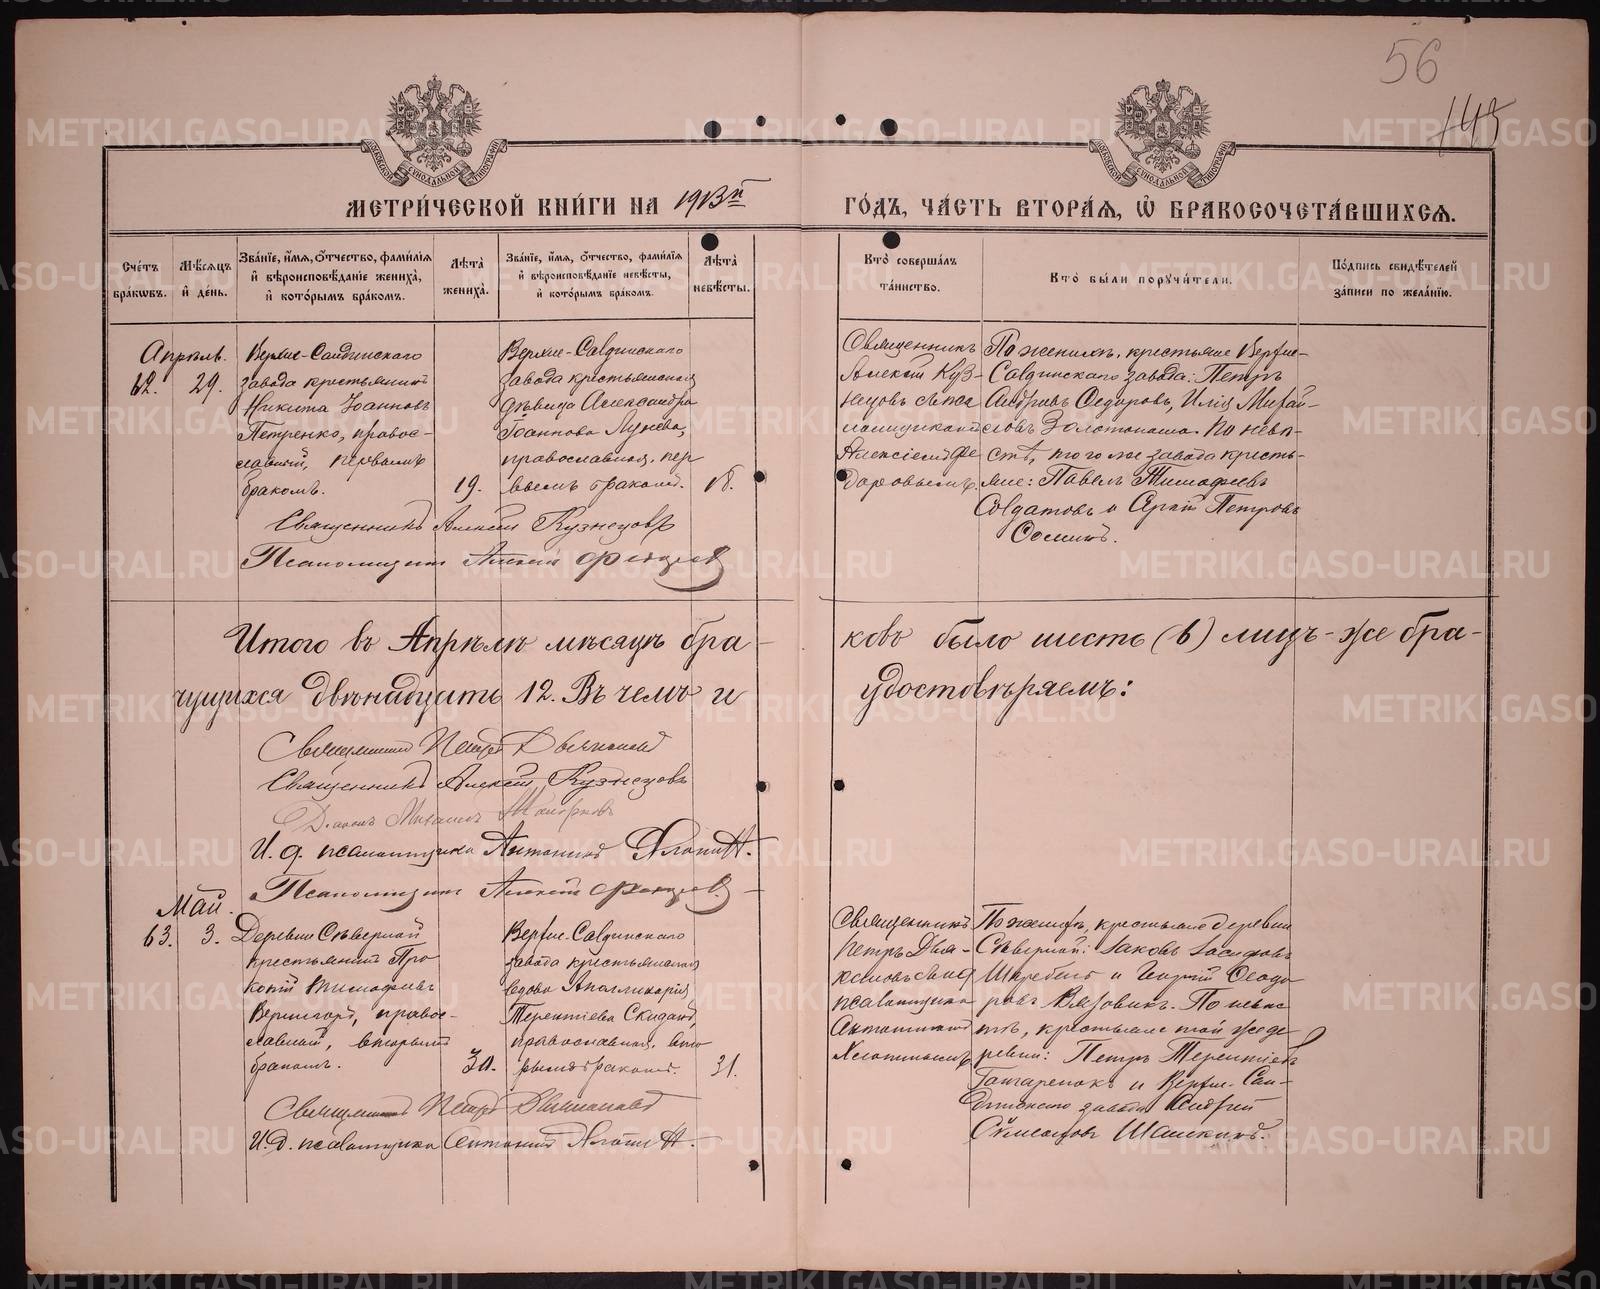 56
145
МЕТРИ́ЧЕСКОЙ КНИ́ГИ НА 1913й ГО́ДЪ, ЧА́СТЬ ВТОРА́Я, Ѡ҆ БРАКОСОЧЕТА́ВШИХСЯ.
Сче́тъ бра́кѡвъ.
Мѣ́сяцъ и҆ де́нь.
Зва́нїе, и҆́мя, ѻ҆́тчество, фами́лїя и҆ вѣроисповѣ́данїе жениха̀, и҆ кото́рымъ бра́комъ.
Лѣ́та жениха̀.
Зва́нїе, и҆́мя, ѻ҆́тчество, фами́лїя и҆ вѣроисповѣ́данїе невѣ́сты, и҆ кото́рымъ бра́комъ.
Лѣ́та невѣ́сты.
Кто̀ соверша́лъ та́инство.
Кто̀ бы́ли поручи́тели.
По́дпись свидѣ́телей за́писи по жела́нїю.
Апрѣль.
62.
29.
Верхне-Салдинскаго
завода крестьянинъ
Никита Іоанновъ
Петренко, правос-
лавный, первымъ
бракомъ.
19.
Верхне-Салдинскаго
завода крестьянская
дѣвица Александра
Іоаннова Лунева,
православная, пер
вымъ бракомъ.
18.
Священникъ
Алексій Куз-
нецовъ съ пса
ломщикомъ
Алексіемъ Фе
доровымъ.
По женихѣ, крестьяне Верхне-
Салдинскаго завода: Петръ
Андреевъ Федоровъ, Илія Михай-
ловъ По невѣ-
стѣ, того же завода кресть-
яне: Павелъ Тимофеевъ
Солдатовъ и Петровъ
Священникъ Алексій Кузнецовъ
Псаломщикъ Алексій
Итого въ Апрѣлѣ мѣсяцѣ бра-
ковъ было шесть (6) лицъ-же бра-
чущихся двѣнадцать 12. Въ чемъ и
удостовѣряемъ:
Священникъ Петръ
Священникъ Алексій Кузнецовъ
Діаконъ Михаилъ
И. д. псаломщика Антоній Хлопинъ.
Псаломщикъ Алексій
Май.
63.
3.
Деревни Сѣверной
крестьянинъ Про
копій Тимофеевъ
правос-
лавный, вторымъ
бракомъ.
30.
Верхне-Салдинскаго
завода крестьянская
вдова Аполлинарія
Терентіева
православная, вто
рымъ бракомъ.
31.
Священникъ
Петръ Дья-
коновъ съ и д
псаломщика
Антоніемъ
Хлопинымъ
По женихѣ, крестьяне деревни
Сѣверной: Іаковъ Іосифовъ
и Андрей Ѳеодо
ровъ Вязовикъ. По невѣс
тѣ, крестьяне той же де
ревни: Петръ Терентіевъ
Гончаренокъ и Верхне-Сал-
динскаго завода Андрей
Священникъ Петръ
И. д. псаломщика Антоній Хлопинъ.
METRIKI.GASO-URAL.RU